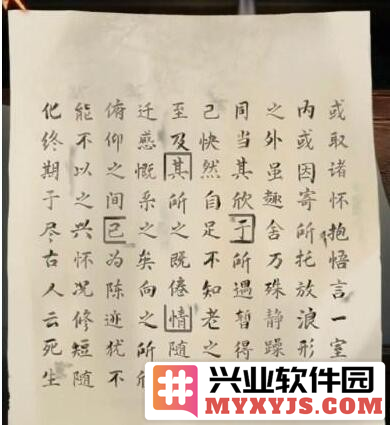 或取诸怀抱悟言一室
内或因寄所托放浪形
之外虽趣舍万殊静躁
同当其欣于所遇暂得
己快然自足不知老之
至及其所之既倦情随
迁感慨系之矣向之所
俯仰之间已为陈迹犹不
能不以之兴怀况修短随
化终期于尽古人云死生
兴业软件园
MYXYJS.COM